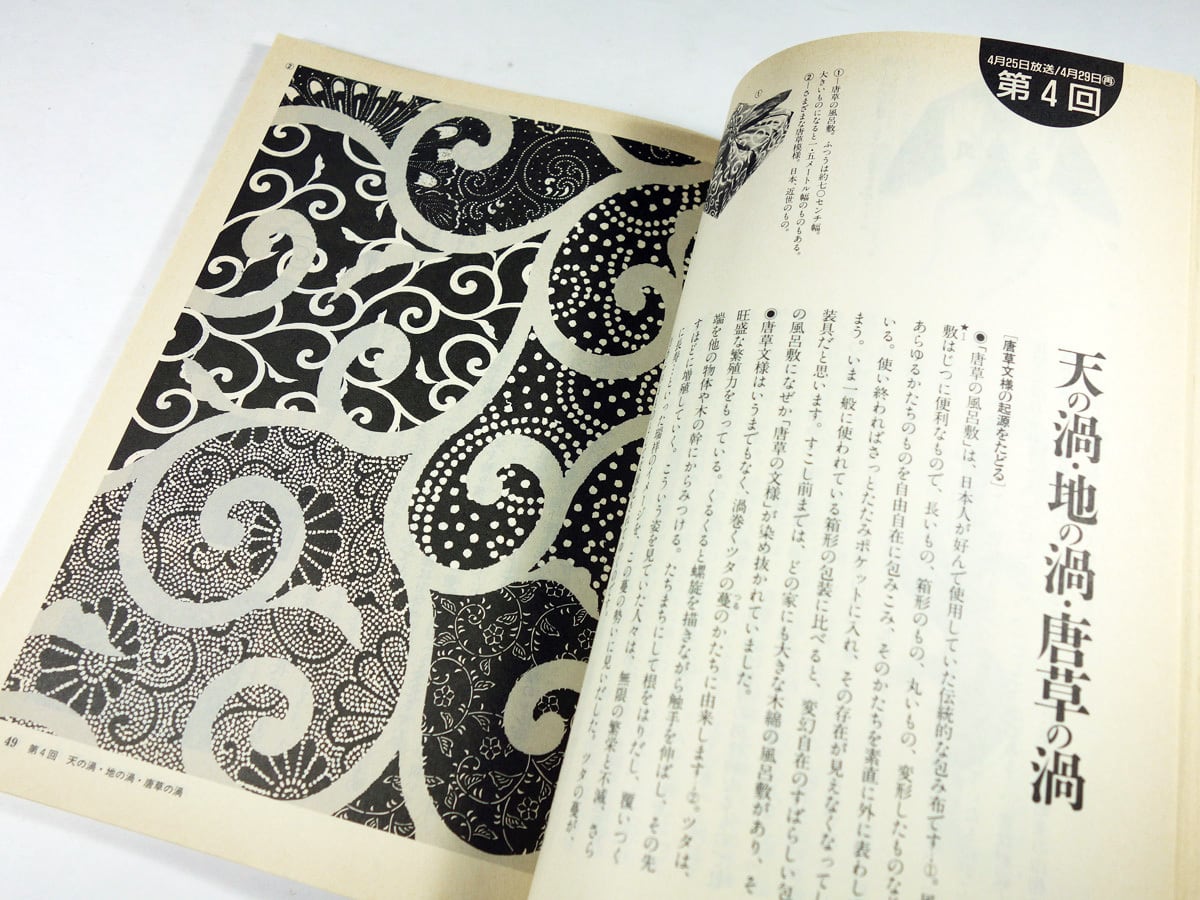 4月25日放送/4月29日再
第4回
①―唐草の風呂敷。ふつうは約七〇センチ幅。
大きいものになると一・五メートル幅のものもある。
②―さまざまな唐草模様。日本、近世のもの。
①
天の渦・地の渦・唐草の渦
[唐草文様の起源をたどる]
●「唐草の風呂敷」は、日本人が好んで使用していた伝統的な包み布です―①。風
★1
敷はじつに便利なもので、長いもの、箱形のもの、丸いもの、変形したものな
あらゆるかたちのものを自由自在に包みこみ、そのかたちを素直に外に表わし
いる。使い終わればさっとたたみポケットに入れ、その存在が見えなくなってし
まう。いま一般に使われている箱形の包装に比べると、変幻自在のすばらしい包
装具だと思います。すこし前までは、どの家にも大きな木綿の風呂敷があり、そ
の風呂敷になぜか「唐草の文様」が染め抜かれていました。
●唐草文様はいうまでもなく、渦巻くツタの蔓のかたちに由来します―②。ツタは、
つる
旺盛な繁殖力をもっている。くるくると螺旋を描きながら触手を伸ばし、その先
端を他の物体や木の幹にからみつける。たちまちにして根をはりだし、覆いつく
すほどに増殖していく。こういう姿を見ていた人々は、無限の繁栄と不滅、さら
に長寿…といった瑞祥のイメージを、この蔓の勢いに見いだした。ツタの蔓が、
②
49 第4回 天の渦・地の渦・唐草の渦